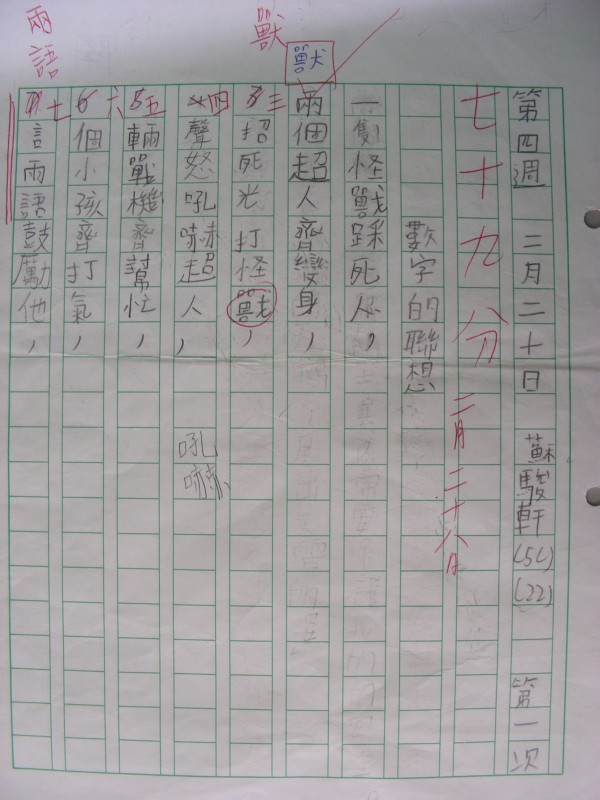 第四週 二月二十日 蘇駿軒(51)(22) 第一次
七十九分 二月二十六日
數字的聯想
一隻怪獸踩死人,
獸
獸
兩個超人齊變身,
三招死光打怪獸,
四聲怒吼嚇超人, 吼嚇
五輛戰機齊幫忙,
六個小孩齊打氣,
七言兩語鼓勵他,
兩語